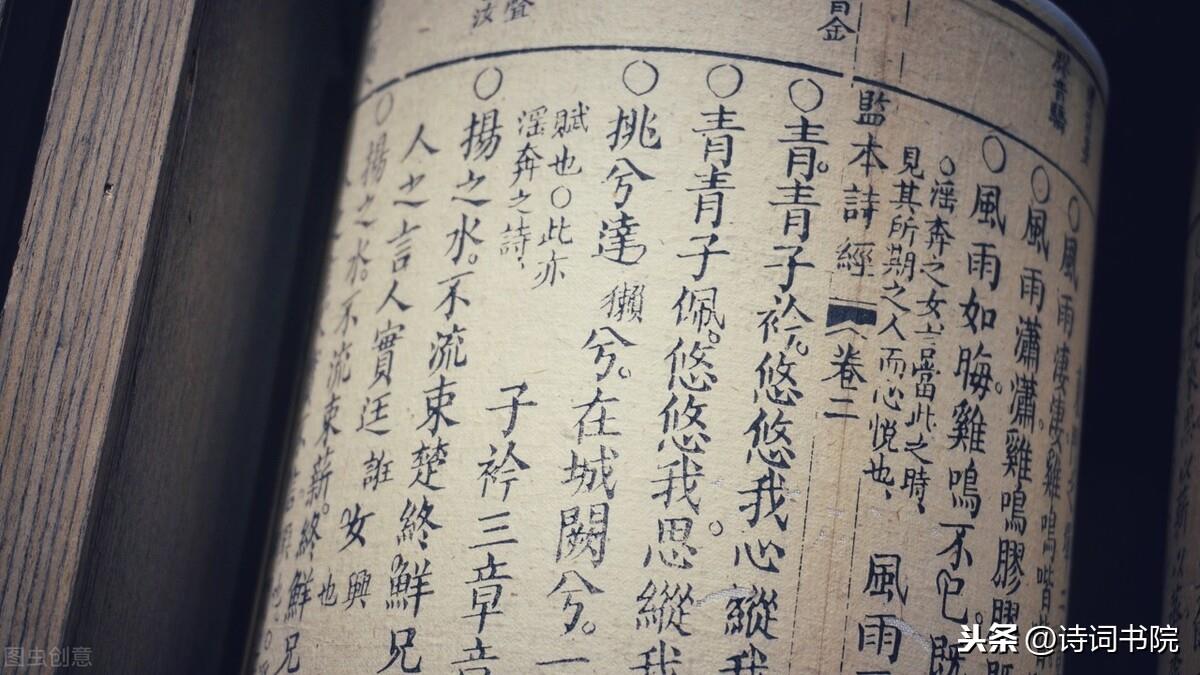 ○風雨淒淒雞鳴喈
○風雨瀟瀟。雞鳴膠膠既
○風雨如晦。雞鳴不已。既
○滛奔之女言當此之時、
見其所期之人而心悅也、
風雨
監本詩經 卷二
○青青子衿。悠悠我心縱我
○青青子佩。悠悠我思。縱我
○挑兮達獺兮。在城闕兮。一
賦也○此亦
滛奔之詩、
子衿三章章
○揚之水。不流束楚終鮮兄
人之言人實迋誑女興也
○揚之水。不流束薪。終鮮兄
头条 @诗词书院
图虫创意